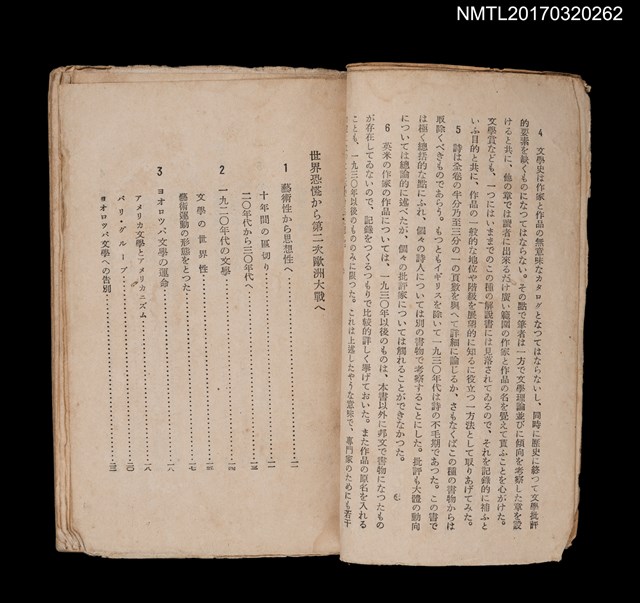 NMTL20170320262
4 文學史は作家と作品の無意味なカタログとなつてはならないし、同時に歷史に終つて文學批評
的要素を缺くものになつてはならない。その點で筆者は一方で文學理論並びに傾向を考察した章を設
けると共に、他の章では讀者に出來るだけ廣い範圍の作家と作品の名を覺えて貰ふことを心がけた。
文學賞なども、一つにはいままでのこの種の解說書には見落されてゐるので、それを記錄的に補ふと
いふ目的と共に、作品の一般的な地位や階級を展望的に知るに役立つ一方法として取りあげてみた。
5 詩は全卷の半分乃至三分の一の頁數を與へて詳細に論じるか、さもなくばこの種の書物からは
取除くべきものであらう。もつともイギリスを除いて一九三〇年代は詩の不毛期であつた。この書で
は極く總括的な點にふれ、個々の詩人については別の書物で考察することにした。批評も大體の動向
については總論的に述べたが、個々の批評家については觸れることができなかつた。
6 英米の作家の作品については、一九三〇年以後のものは、本書以外に邦文で書物になつたもの
が存在してゐないので、記錄をつくるつもりで比較的詳しく擧げておいた。また作品の原名を入れる
ことも、一九三〇年以後のもののみに限つた。これは上述したやうな意味で、專門家のためにも若干
世界恐慌から第二次歐洲大戰へ
1 藝術性から思想性へ……一一
十年間の區切り……一一
二〇年代から三〇年代へ……一三
2 一九二〇年代の文學……一四
文學の世界性……一四
藝術運動の形態をとつた……一七
3 ヨオロツパ文學の運命……一八
アメリカ文學とアメリカニズム……一八
パリ・グループ……二〇
ヨオロツパ文學への告別……二三